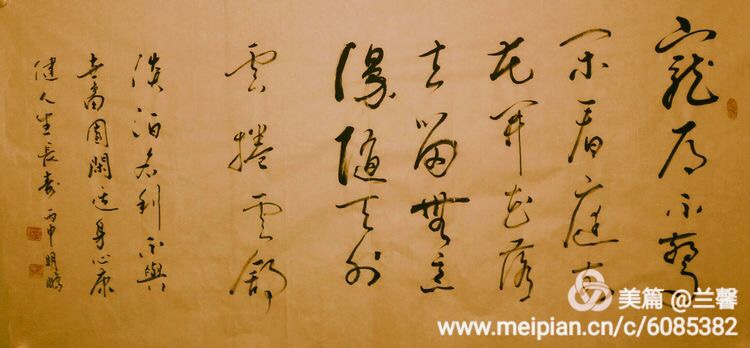 寵辱不驚
閑看庭前
花開花落
去留無意
漫隨天外
雲捲雲舒
淡泊名利不與
世圖閑適身心康
健人生長壽 丙申 明
美篇 @兰馨
www.meipian.cn/c/6085382